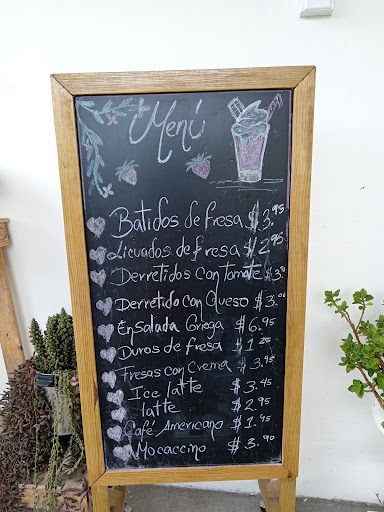 Menú
Batidos de fresa $3.95
Licuados de fresa $2.95
Derretidos con tomate $3.
Derretido con Queso $3.
Ensalada Griega $6.95
Duros de fresa $1.
Fresas con Crema $3.95
Ice latte $3.45
latte $2.95
Café Americano $1.95
Mocaccino $3.90